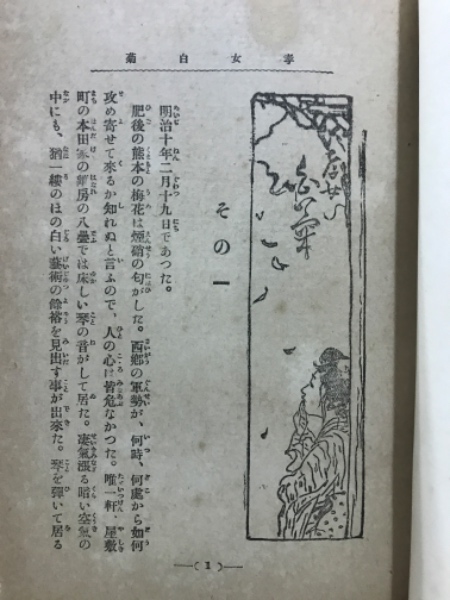 孝女白菊
孝女白菊
その一
明治十年二月十九日であつた。
肥後の熊本の梅花は煙硝の匂がした。西郷の軍勢が、何時、何處から如何
攻め寄せて來るか知れぬと言ふので、人の心は皆危なかつた。唯一軒、屋敷
町の本田家の離房の八疊では床しい琴の音がして居た。凄氣漲る暗い空氣の
中にも、猶一縷のほの白い藝術の餘裕を見出す事が出來た。琴を彈いて居る
(1)